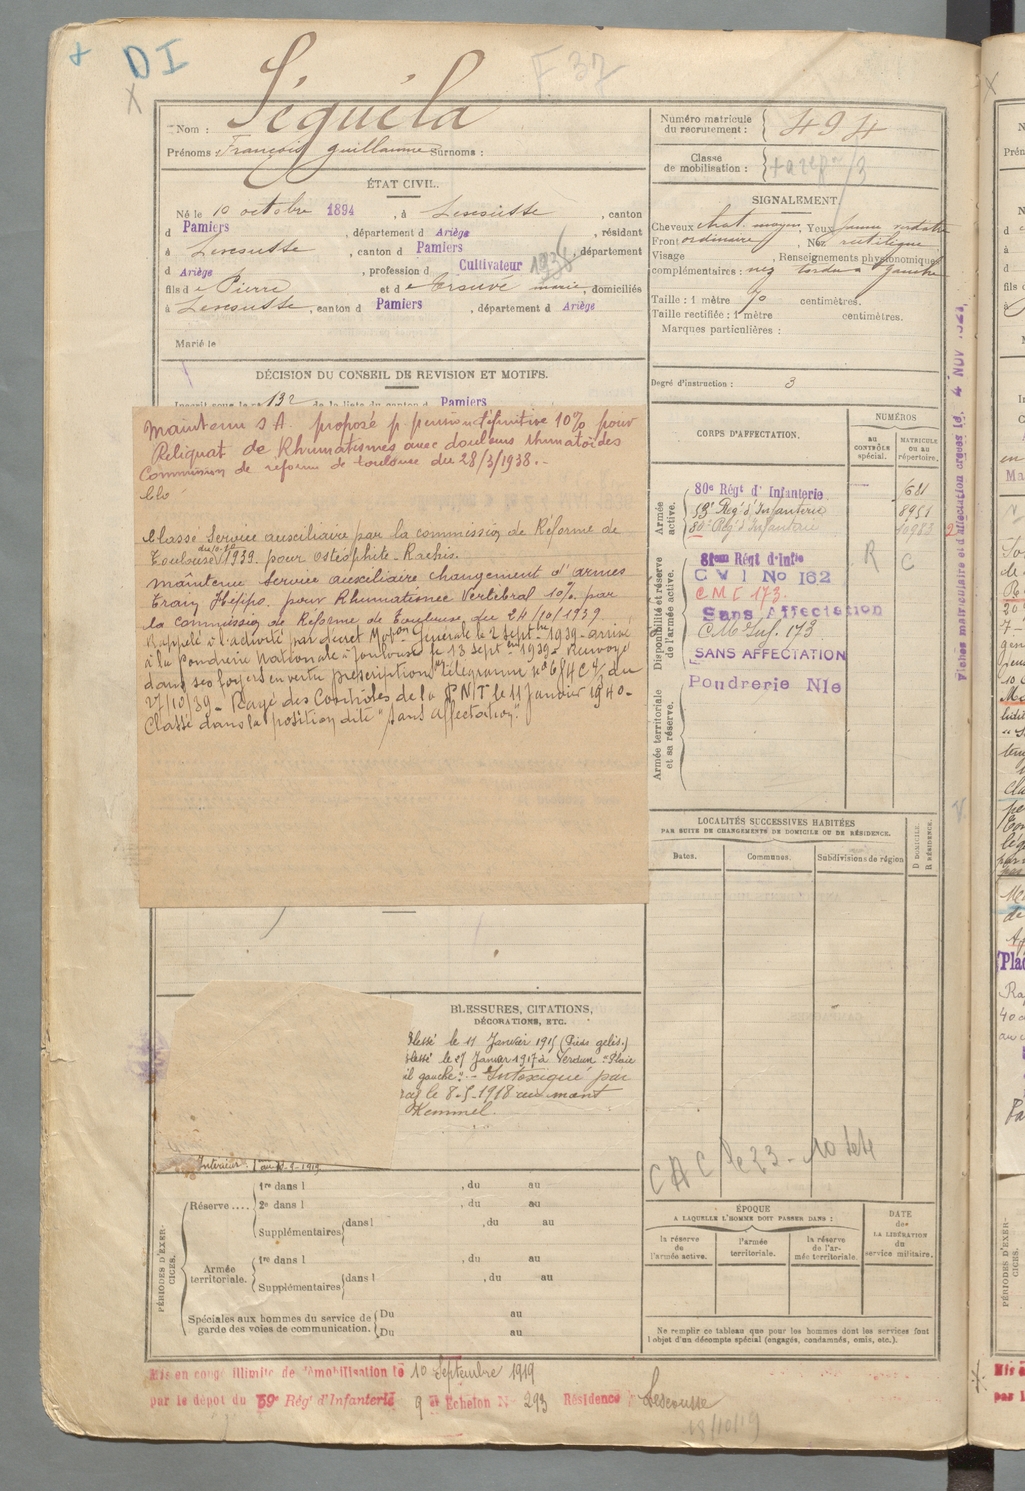 DI
F 37
Nom : Séguéla
Prénoms : François Guillaume Surnoms :
Numéro matricule
du recrutement : 494
Classe
de mobilisation :
ÉTAT CIVIL.
Né le 10 octobre 1894, à Lescousse, canton
d Pamiers, département d Ariège, résidant
à Lescousse, canton d Pamiers, département
d Ariège, profession d Cultivateur 1938
fils de Pierre et de marie, domiciliés
à Lescousse, canton d Pamiers, département d Ariège
Marié le
SIGNALEMENT.
Cheveux chat. moyen, Yeux
Front ordinaire, Nez rectiligne
Visage , Renseignements physionomiques
complémentaires : nez tordu à gauche
Taille : 1 mètre 70 centimètres.
Taille rectifiée : 1 mètre centimètres.
Marques particulières :
Degré d'instruction : 3
DÉCISION DU CONSEIL DE REVISION ET MOTIFS.
Inscrit sous le n° 132 de la liste du canton d Pamiers
Maintenu S A. proposé p. pension définitive 10% pour
Reliquat de Rhumatismes avec douleurs rhumatoïdes
Commission de réforme de toulouse du 28/3/1938.-
Classe Service auxiliaire par la commission de Réforme de
Toulouse 1939. pour Ostéophite - Rachis.
maintenu Service auxiliaire changement d'armes
Train Hippo. pour Rhumatisme Vertébral 10% par
la commission de Réforme de Toulouse du 24/10/1939
Rappelé à l'activité par décret Mobon Générale le 2 Septbre 1939 - arrivé
à la Poudrerie Nationale - Toulouse le 13 septbre 1939 - Renvoyé
dans ses foyers en vertu prescriptions Télégramme n° du
27/10/39 - Rayé des Contrôles de la P.N/T le 11 Janvier 1940 -
Classé dans la position dite "Sans affectation".
CORPS D'AFFECTATION.
NUMÉROS
au
CONTRÔLE
spécial.
MATRICULE
OU AU
répertoire.
Armée
active.
80e Régt d'Infanterie
59e Régt d'Infanterie 8951
80e Régt d'Infanterie
Disponibilité et réserve
de l'armée active.
81eme Régt d'Infie R C
C V I No 162
C M I 173.
Sans Affectation
C M Inf. 173
SANS AFFECTATION
Armée territoriale
et sa réserve.
Poudrerie Nle
Fiches matriculaire et d'affectation créées le 4 NOV
LOCALITÉS SUCCESSIVES HABITÉES
PAR SUITE DE CHANGEMENTS DE DOMICILE OU DE RÉSIDENCE.
Dates. Communes. Subdivisions de région
D DOMICILE.
R RÉSIDENCE.
BLESSURES, CITATIONS,
DÉCORATIONS, ETC.
Blessé le 11 Janvier 1915 (Pieds gelés.)
lessé le 27 Janvier 1917 à Verdun "Plaie
œil gauche". - Intoxiqué par
gaz le 8-5-1918 au mont
Kemmel.
Intérieur
PÉRIODES D'EXERCICES.
Réserve....
1re dans l , du au
2e dans l , du au
Supplémentaires dans l , du au
Armée
territoriale.
1re dans l , du au
Supplémentaires dans l , du au
Spéciales aux hommes du service de
garde des voies de communication.
Du au
Du au
CAC
ÉPOQUE
A LAQUELLE L'HOMME DOIT PASSER DANS :
la réserve
de
l'armée active.
l'armée
territoriale.
la réserve
de l'ar-
mée territoriale.
DATE
de
LA LIBÉRATION
du
service militaire.
Ne remplir ce tableau que pour les hommes dont les services font
l'objet d'un décompte spécial (engagés, condamnés, omis, etc.).
Mis en congé illimité de démobilisation le 10 Septembre 1919
par le dépôt du 59e Rég' d'Infanterie 9e Echelon N° 293 Résidence Lescousse
18/10/19